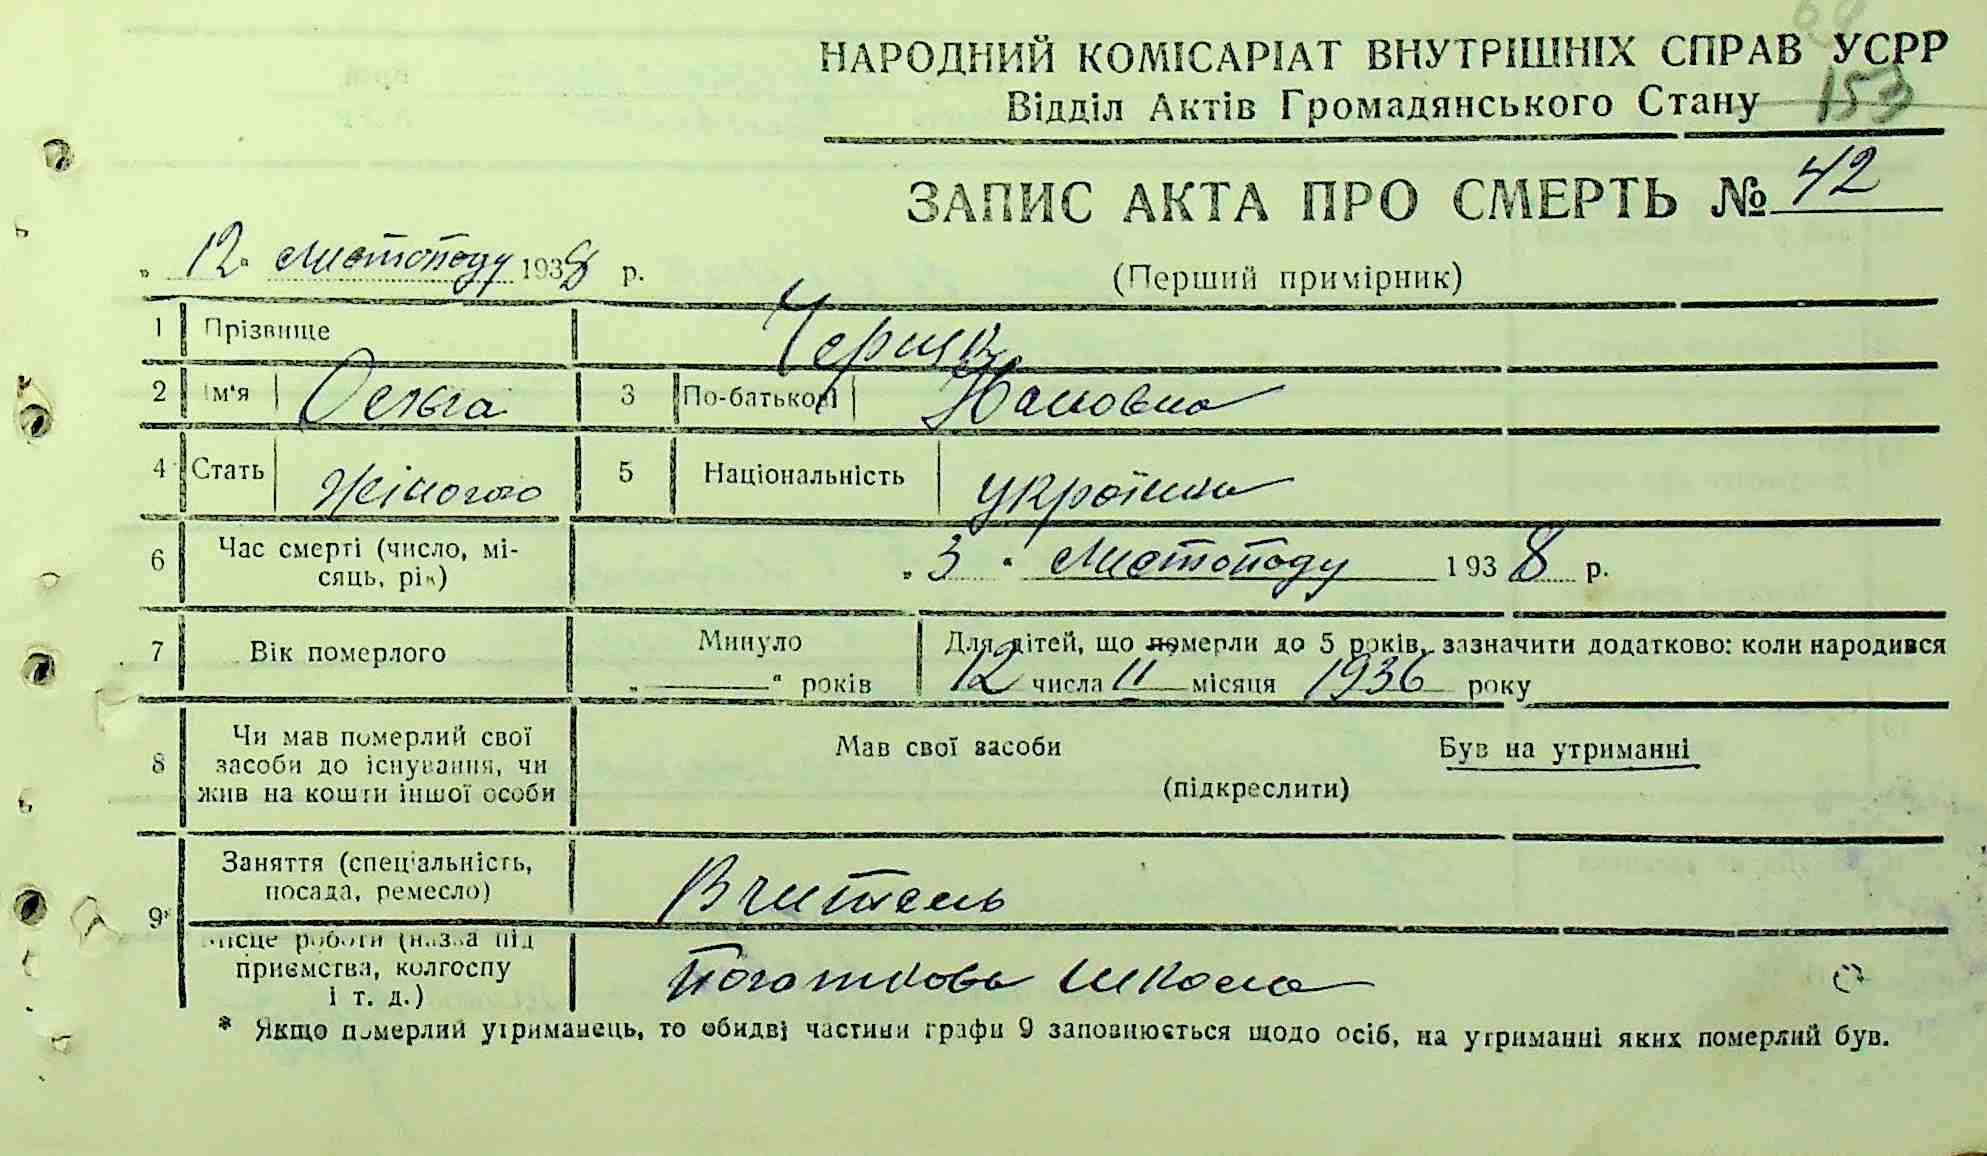 НАРОДНИЙ КОМІСАРІАТ ВНУТРІШНІХ СПРАВ УСРР
Відділ Актів Громадянського Стану 153
ЗАПИС АКТА ПРО СМЕРТЬ № 42
„ 12 “ листопаду 1938 р.
(Перший примірник)
1 Прізвище
2 Ім'я Ольга 3 По-батькові
4 Стать жіночого 5 Національність українка
6 Час смерті (число, мі-
сяць, рік) „ 3 “ листопаду 1938 р.
7 Вік померлого Минуло „ — “ років
Для дітей, що померли до 5 років, зазначити додатково: коли народився
12 числа 11 місяця 1936 року
8 Чи мав померлий свої
засоби до існування, чи
жив на кошти іншої особи
Мав свої засоби Був на утриманні
(підкреслити)
9* Заняття (спеціальність,
посада, ремесло) Вчитель
Місце роботи (назва під
приємства, колгоспу
і т. д.) Початкова школа
* Якщо померлий утриманець, то обидві частини графи 9 заповнюється щодо осіб, на утриманні яких померлий був.